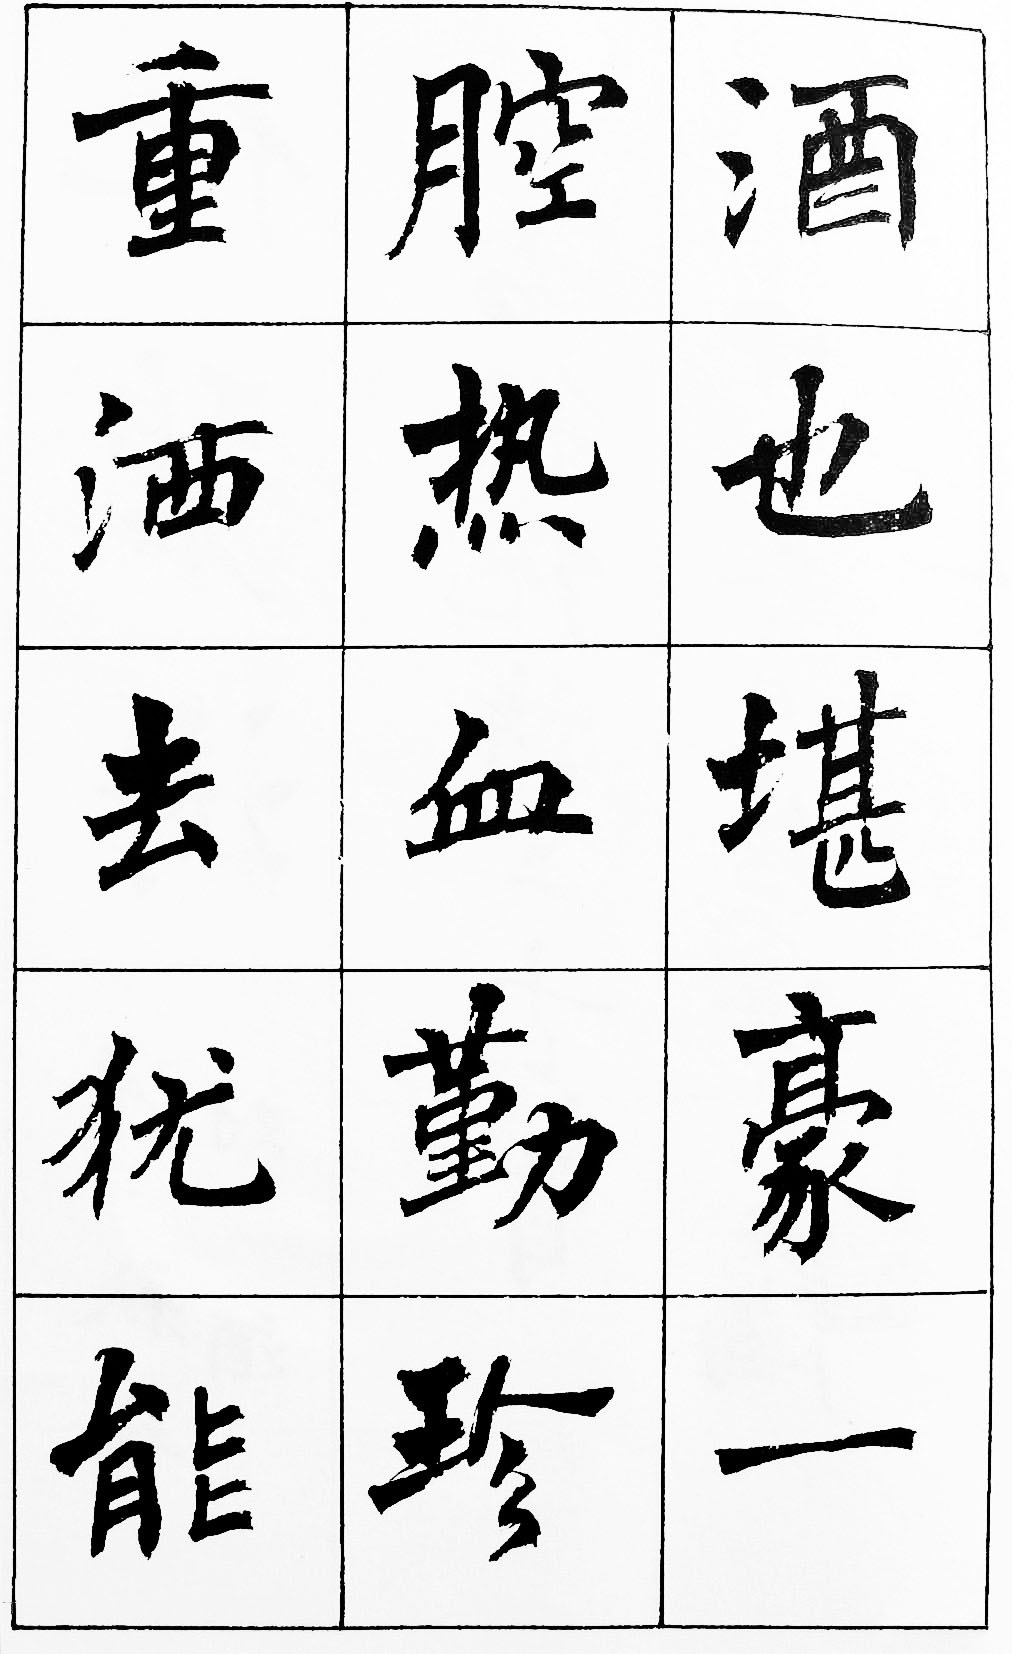 酒也堪豪一
腔热血勤珍
重洒去犹能